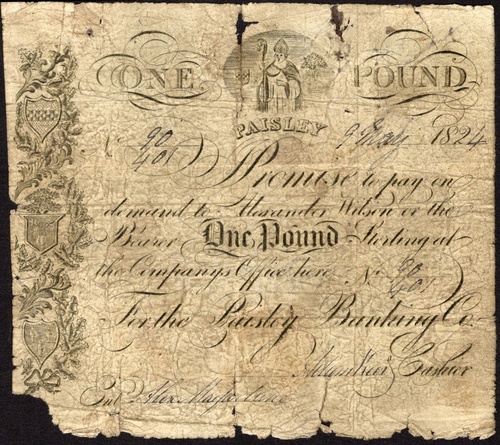 ONE POUND
PAISLEY
No 90/401 9 May 1824
Promise to pay on
demand to Alexander Wilson or the
Bearer One Pound Sterling at
the Companys Office here No 90/401
For the Paisley Banking Co.
Cashier
Ent